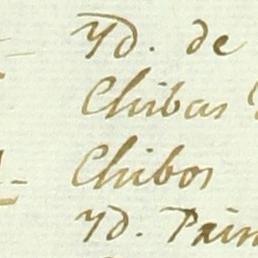 Yd. de
Chibas
Chibos
Yd. Prim